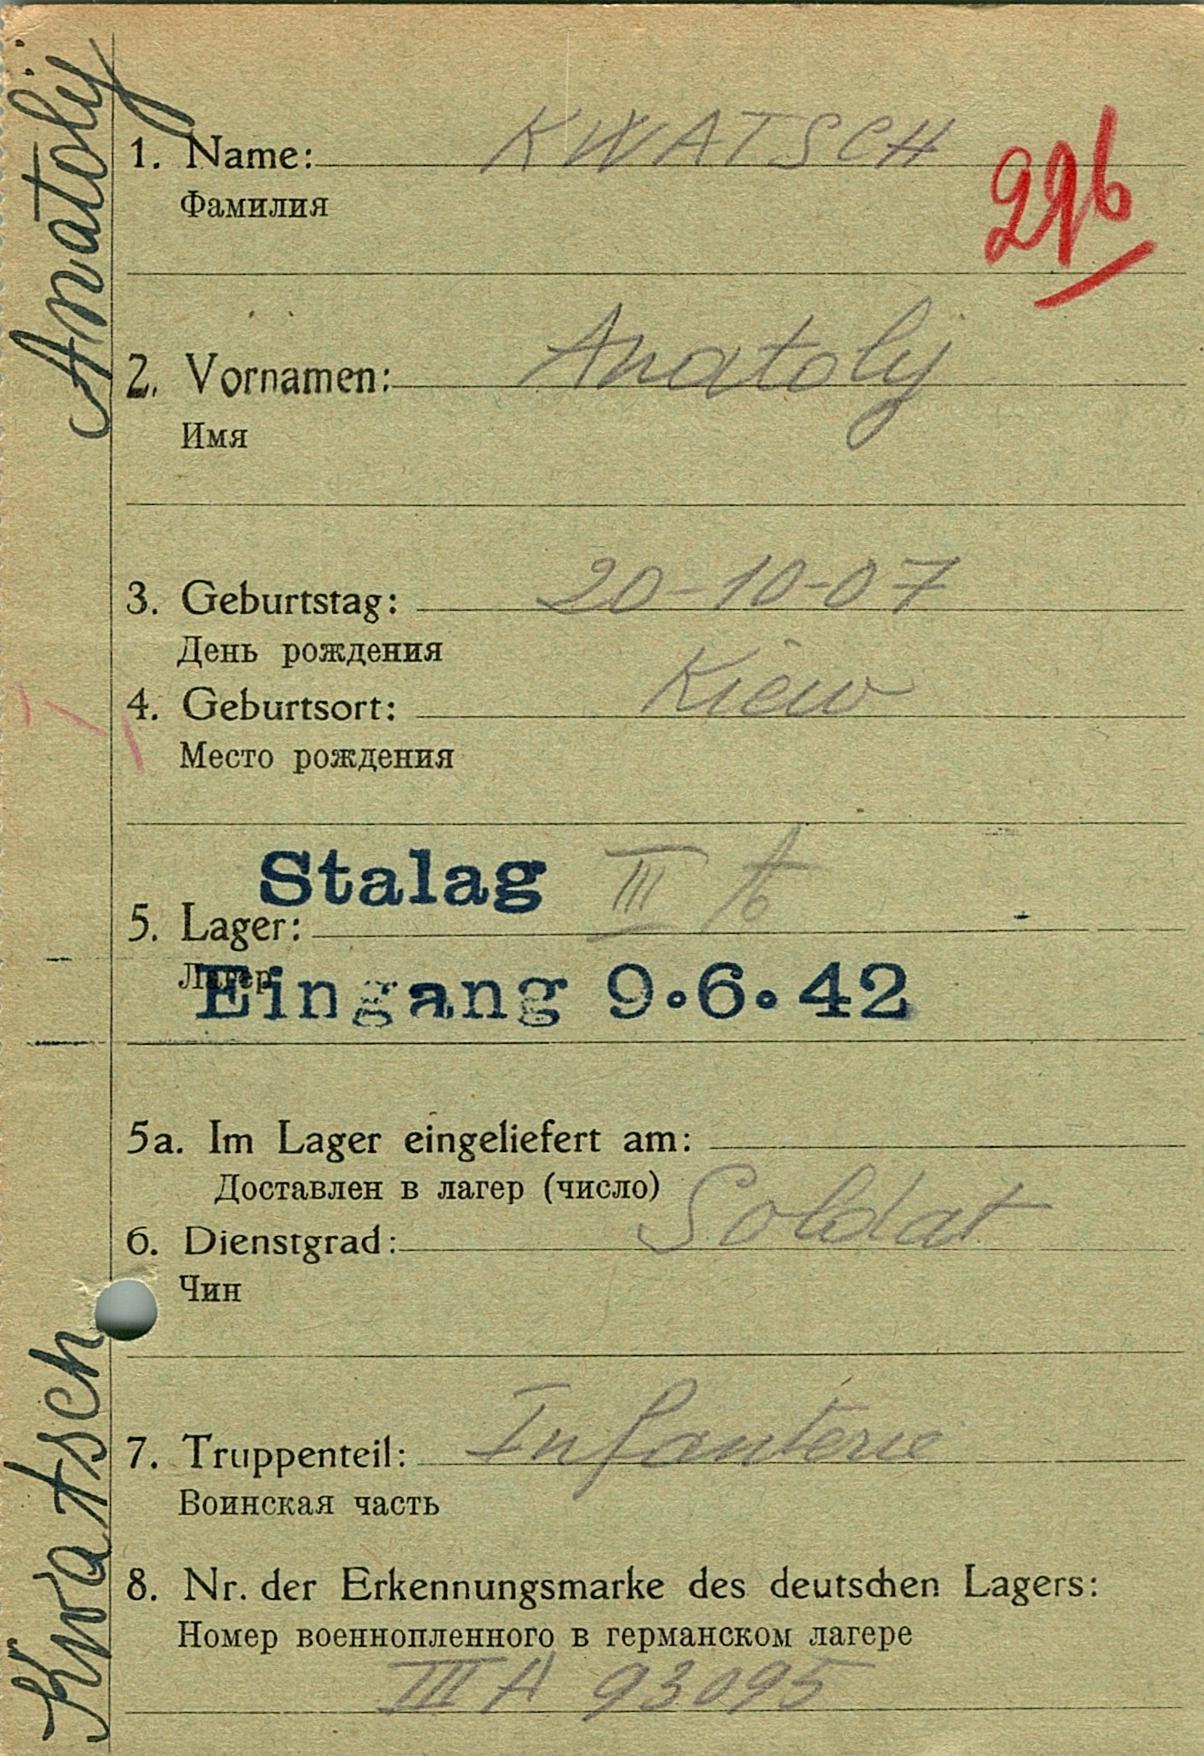 Kwatsch Anatolÿ
1. Name: KWATSCH
Фамилия
296
2. Vornamen: Anatolij
Имя
3. Geburtstag: 20-10-07
День рождения
4. Geburtsort: Kiew
Место рождения
Stalag III A
5. Lager:
Лагер
Eingang 9.6.42
5a. Im Lager eingeliefert am:
Доставлен в лагер (число)
6. Dienstgrad: Soldat
Чин
7. Truppenteil: Infanterie
Воинская часть
8. Nr. der Erkennungsmarke des deutschen Lagers:
Номер военнопленного в германском лагере
III A 93095